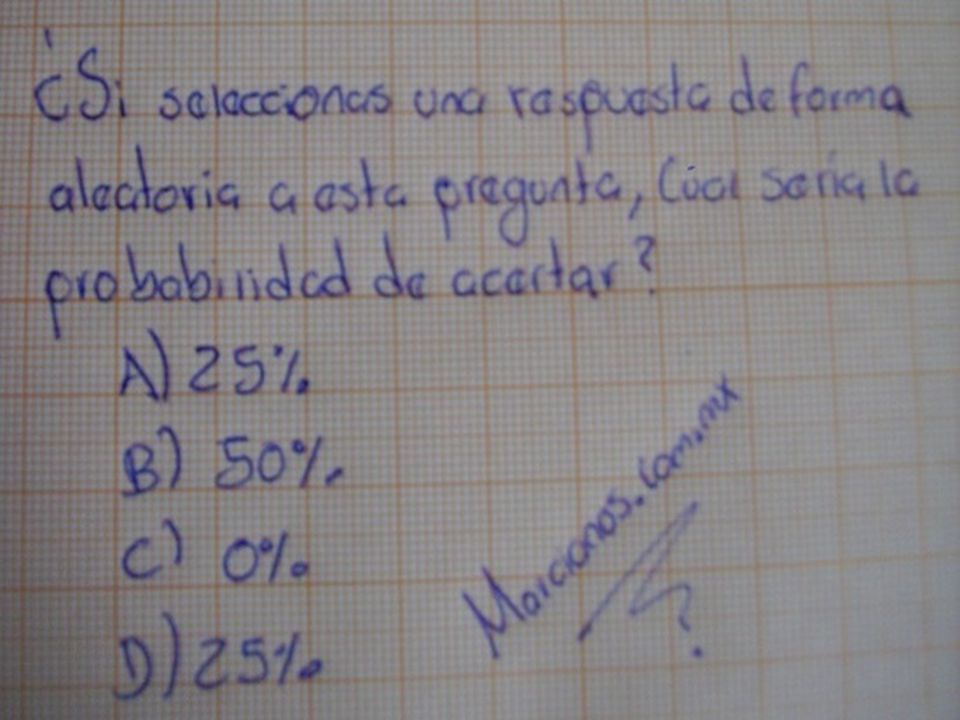 ¿Si seleccionas una respuesta de forma
aleatoria a esta pregunta, Cúal sería la
probabilidad de acertar?
A) 25%
B) 50%
C) 0%
D) 25%
Marcianos.com.mx